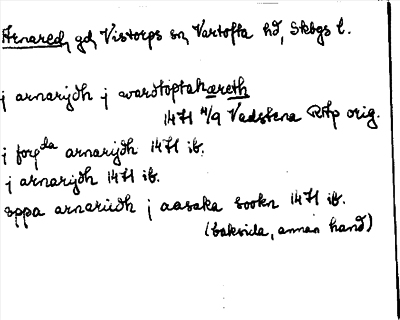 Arnared, gd, Vistorps sn, Vartofta hd, Skbgs l.
j arnarijdh j wardtoptahæreth
1471 4/9 Vadstena RAp orig.
j forp^da arnarijdh 1471 ib.
j arnarijdh 1471 ib.
oppa arnarüdh j aasaka sookn 1471 ib.
(baksida, annan hand)